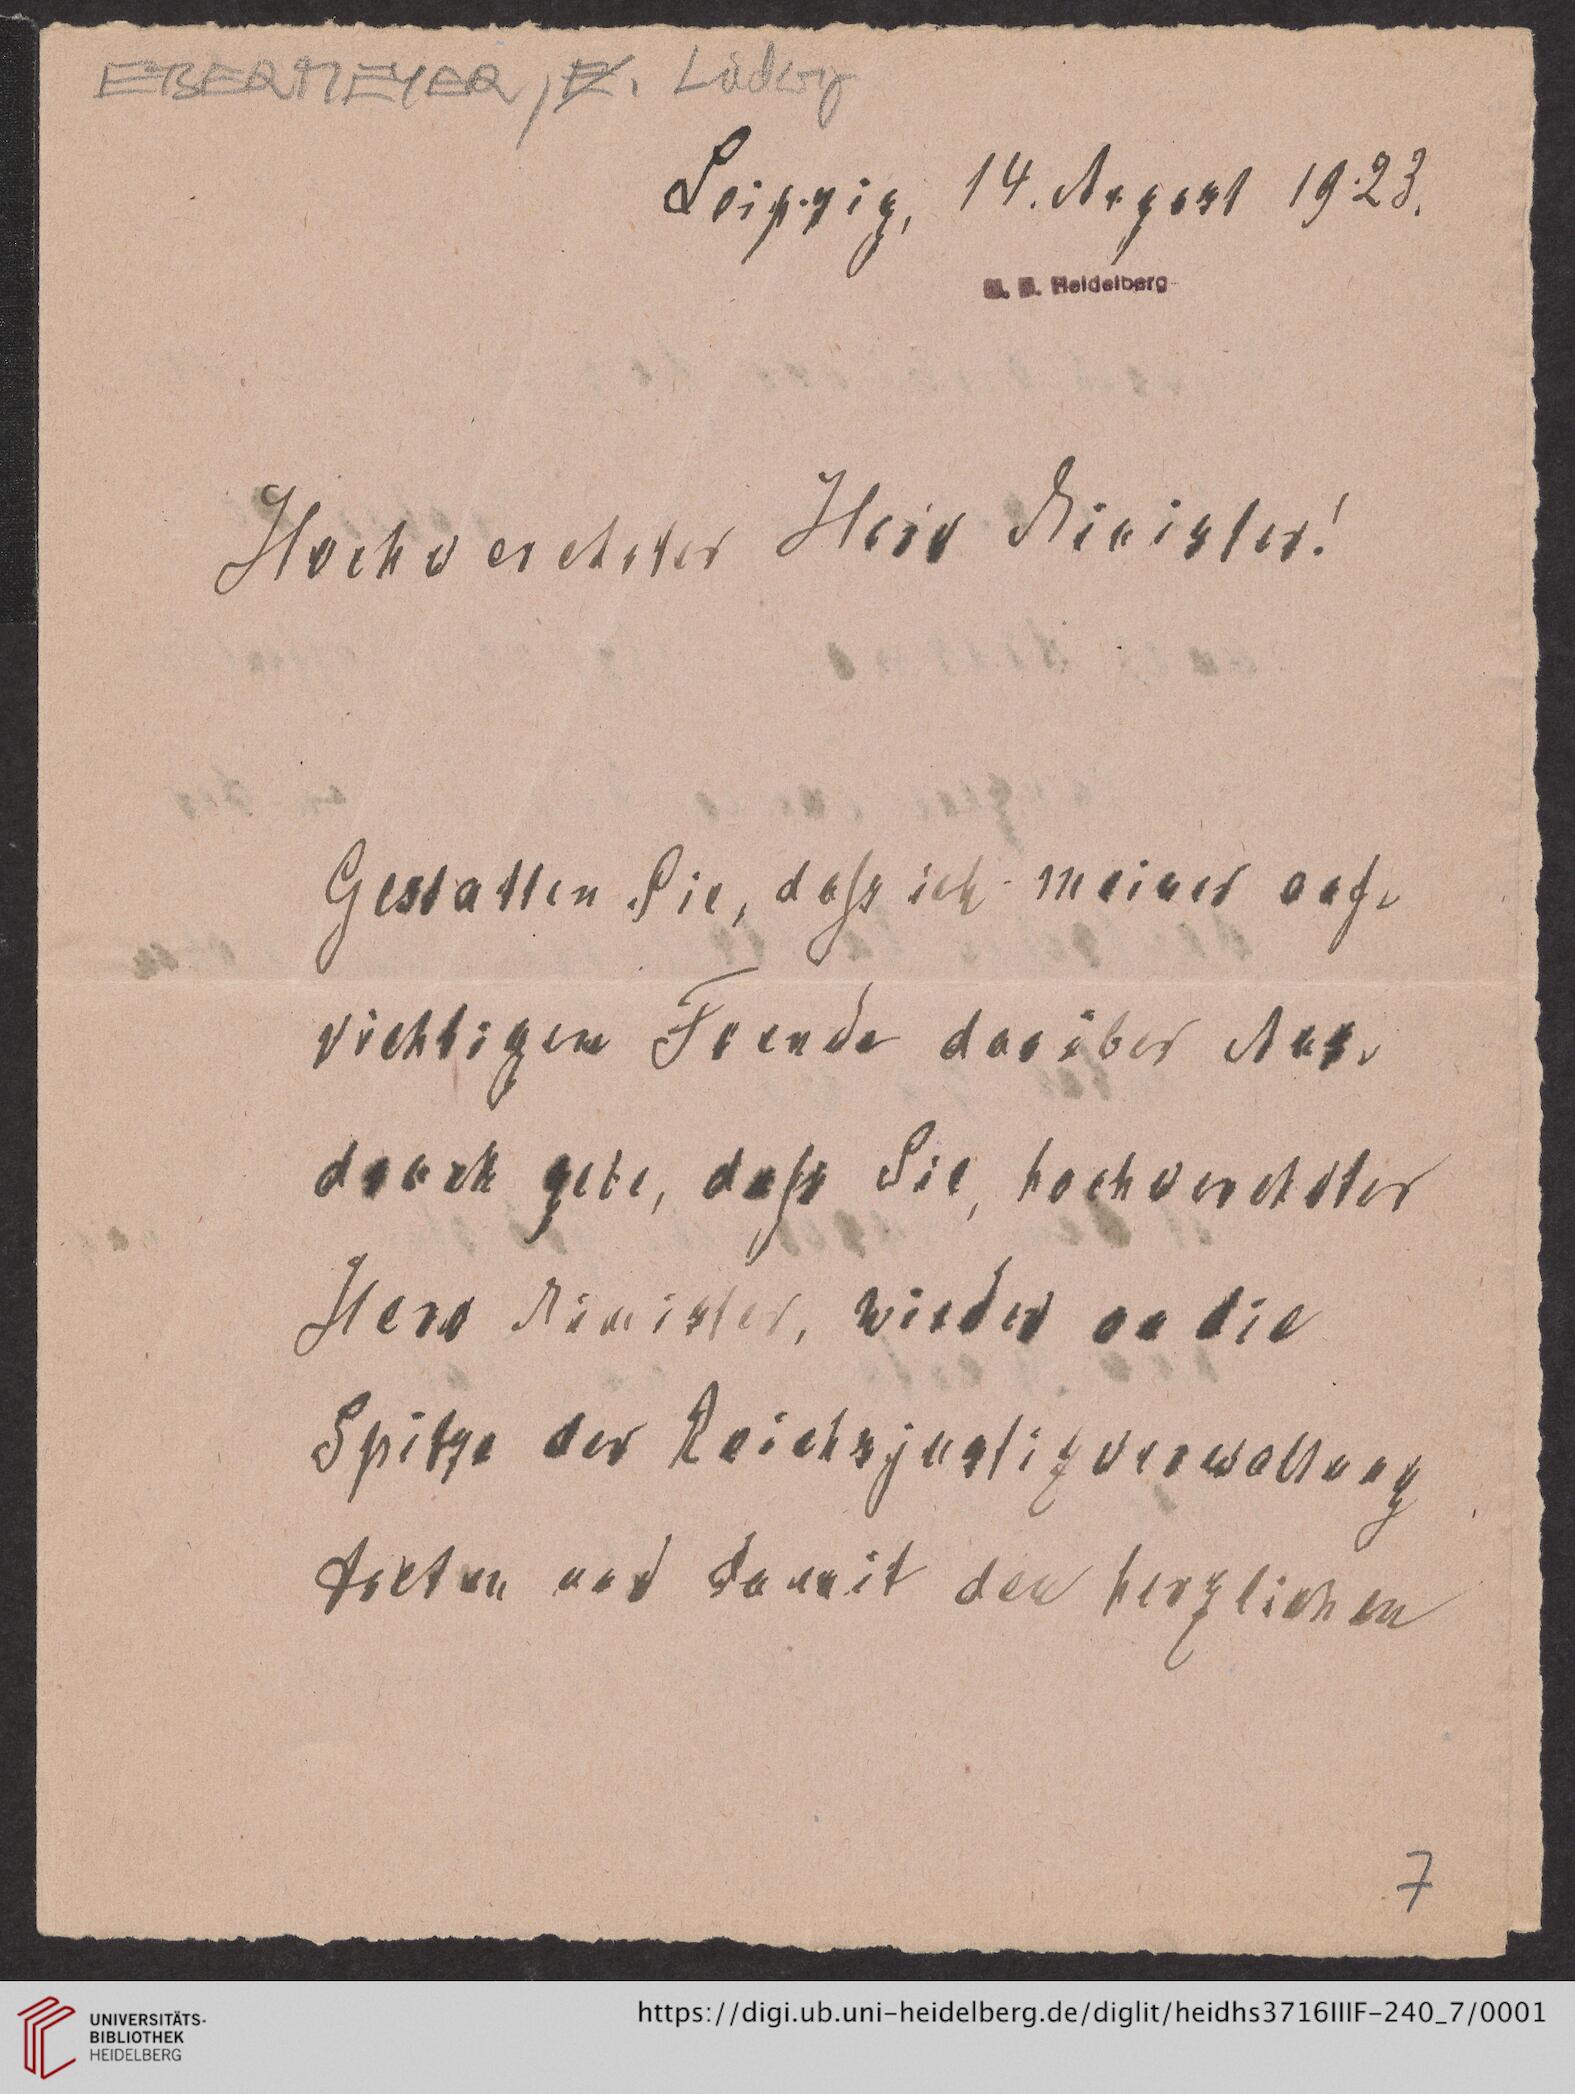 EBERMEYER, E. Ludwig
Leipzig, 14. August 1923.
U. B. Heidelberg
Hochverehrter Herr Minister!
Gestatten Sie, daß ich meiner auf-
richtigen Freude darüber Aus-
druck gebe, daß Sie, hochverehrter
Herr Minister, wieder an die
Spitze der Reichsjustizverwaltung
treten und damit den herzlichen
7
UNIVERSITÄTS-
BIBLIOTHEK
HEIDELBERG
https://digi.ub.uni-heidelberg.de/diglit/heidhs3716IIIF-240_7/0001